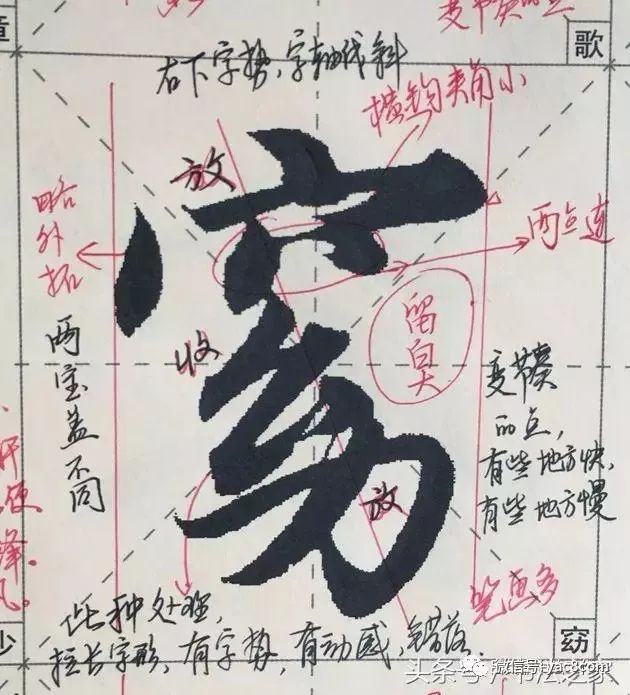 童
歌
右下字势、字轴线斜
横钩夹角小
放
略外拓
两点连
窈
收
留白大
两宝盖不同
变节奏的点,
有些地方快,
有些地方慢
放
笔画多
此种处理,
拉长字形,有字势,有动感,错落.
少
窈
头条号/书法之家
微信号:yac8com